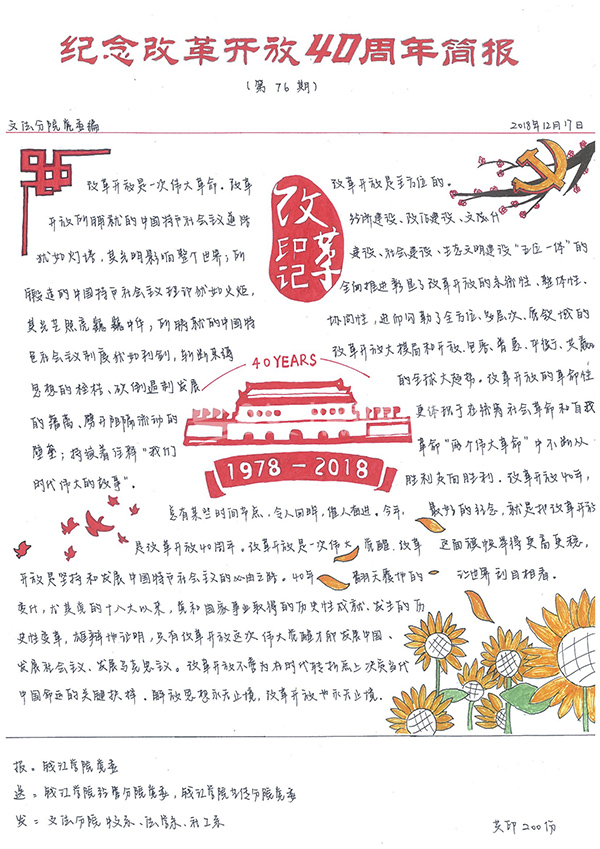 纪念改革开放40周年简报
(第76期)
文法分院党委编
2018年12月17日
改革开放是一次伟大革命。改革
开放所开辟的中国特色社会主义道路
犹如灯塔，其光明影响整个世界；所
的中国特色社会主义理论犹如火炬，
其光芒照亮
色社会主义制度犹如利剑，斩断束缚
思想的桎梏、砍倒遏制发展
的藩篱、劈开阴暗流动的
壁垒；持续着注释“我们
时代伟大的故事”。
改革印记
改革开放是全方位的。
经济建设、政治建设、文化
建设、社会建设、生态文明建设“五位一体”的
全面推进彰显了改革开放的系统性、整体性、
协同性，进而启动了全方位、多层次、宽领域的
改革开放大格局和开放、包容、普惠、平衡、共赢
的全球大趋势。改革开放的革命性
更体现于在统筹社会革命和自我
革命“两个伟大革命”中不断从
胜利走向胜利。改革开放40年，
最好的纪念，就是把改革开放
这面旗帜举得更高更稳，
让世界刮目相看。
40YEARS
1978-2018
总有某些时间节点，令人回眸，催人奋进。今年，
是改革开放40周年。改革开放是一次伟大觉醒，改革
开放是坚持和发展中国特色社会主义的必由之路。40年翻天覆地的
变化，尤其党的十八大以来，党和国家事业取得的历史性成就、发生的历
史性变革，雄辩地证明，只有改革开放这次伟大觉醒才能发展中国、
发展社会主义、发展马克思主义。改革开放不愧为在时代转折点上决定当代
中国命运的关键抉择。解放思想永无止境，改革开放也永无止境。
报：钱江学院党委
送：钱江学院经管分院党委，钱江学院
发：文法分院中文系、法学系、社工系
共印200份